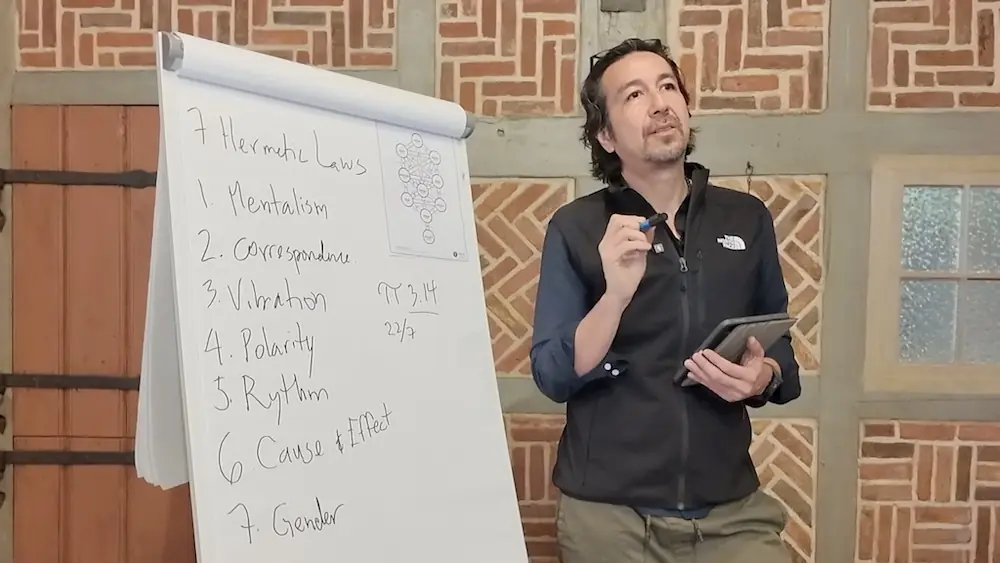 7 Hermetic Laws
1. Mentalism
2. Correspondence.
3. Vibration
π 3.14
22/7
4. Polarity
5. Rythm
6 Cause & Effect
7. Gender
THE NORTH FACE